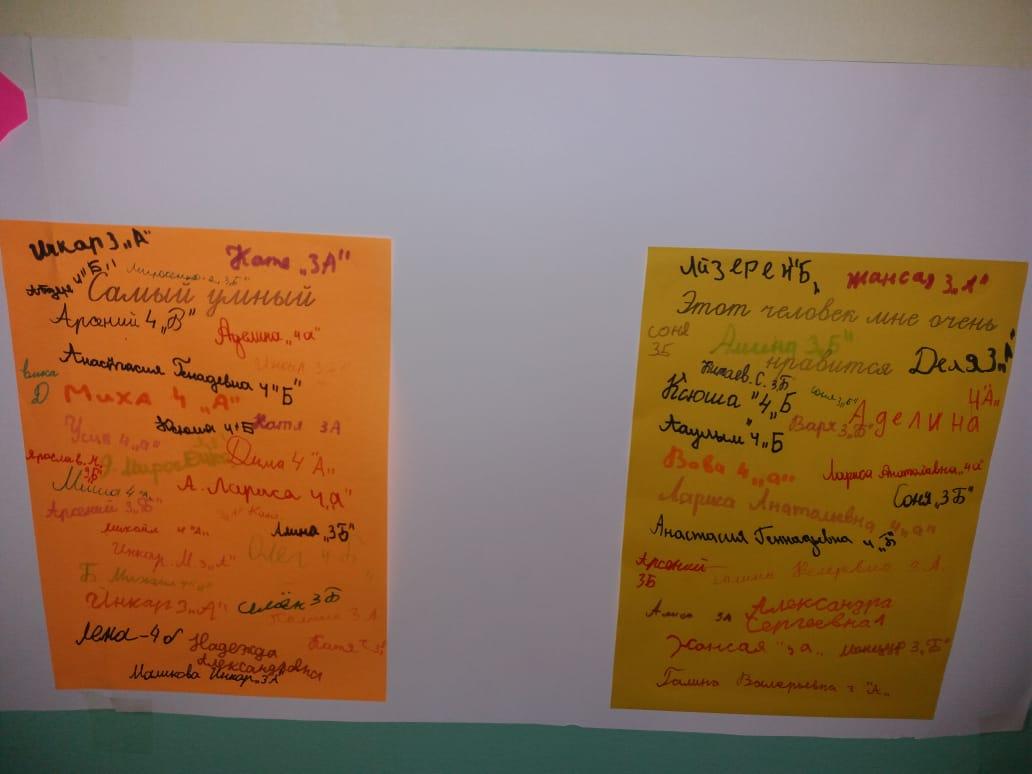 Инкар 3 „А"
Катя „3А"
4 „Б"
Самый умный
Арсений 4 „В"
Аделина „4а"
Анастасия Генадевна 4 "Б"
вика
Д
Миха 4 „А"
Ксюша 4 "Б
Катя 3А
Ярослав. М.
3Б"
Дима 4 "А„
Миша 4 "А„
А. Лариса 4„а
Арсений 3„Б"
михаил 4 "А„
Алина „3Б"
Инкар. М 3„А"
Олег 4 „Б
Б Михаил
Инкар 3 „А"
3Б
Полина 3 А
Лена-4б
Надежда
Александровна
Катя
Машкова Инкар „3А"
Айзерен 4"Б„
Жансая 3„А"
Этот человек мне очень
соня
3Б
Амина 3„Б"
нравится
Деля 3„А"
С. 3„Б
Ксюша "4„Б
соня 3„Б"
4"А„
Аделина
Варя 3„Б"
Ааулым "4„Б
Вова 4 „а"
Лариса Анаталавна „4а"
Соня „3Б"
Лариса Анатальевна 4„а"
Анастасия Геннадьевна 4 „Б"
Арсений
3Б
Алиса 3А
Александра
Сергеевна
Жансая "3а„
3„Б"
Галина Валерьевна 3 "А„